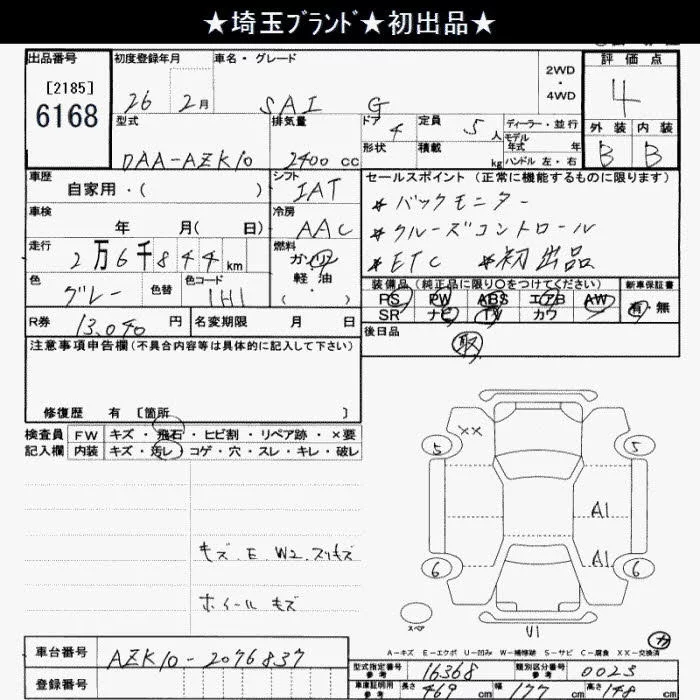 ★埼玉ﾌﾞﾗﾝﾄﾞ★初出品★
出品番号 初度登録年月 車名・グレード 2WD・4WD 評価点
[2185]
6168 26 2月 SAI G 4
型式 排気量 ドア 4 定員 5人 ディーラー・並行 外装 内装
形状 積載 kg モデル年式 年 B B
DAA-AZK10 2400 cc ハンドル 左・右
車歴 シフト セールスポイント (正常に機能するものに限ります)
自家用・( ) IAT *バックモニター
車検 冷房
年 月( 日) AAC *クルーズコントロール
走行 燃料
2万6千844km ガソリン *ETC *初出品
色 色替 色コード 軽油 装備品(純正品に限り○をつけてください) 新車保証書
グレー 1H1 ・( ) PS PW ABS エアB AW 有・無
R券 13,040円 名変期限 月 日 SR ナビ TV カワ
注意事項申告欄(不具合内容等は具体的に記入して下さい) 後日品
取
修復歴 有 [箇所 ]
検査員 FW キズ・飛石・ヒビ割・リペア跡・×要
記入欄 内装 キズ・汚レ・コゲ・穴・スレ・キレ・破レ
XX
5 5
A1
A1
6 6
キズ E W2 スリキズ
ホイールキズ
スペア
V1
カ
A-キズ E-エクボ U-凹み W-補修跡 S-サビ C-腐食 XX-交換済
車台番号 AZK10-2076837
型式指定番号 参考 16368 類別区分番号 参考 0023
登録番号 車庫証明用 参考 長さ 469cm 幅 177cm 高さ 148cm